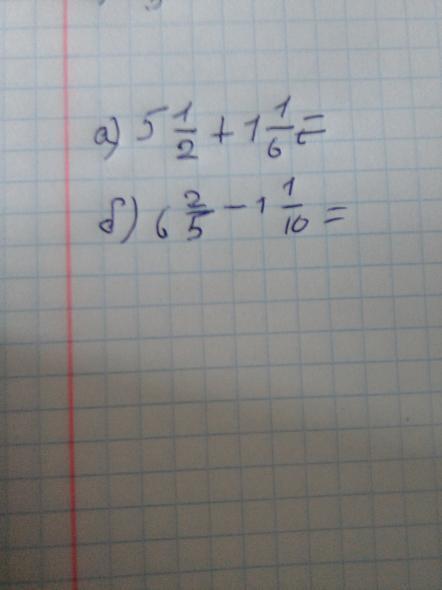 а) 5 1/2 + 1 1/6 =
б) 6 2/5 - 1 1/10 =